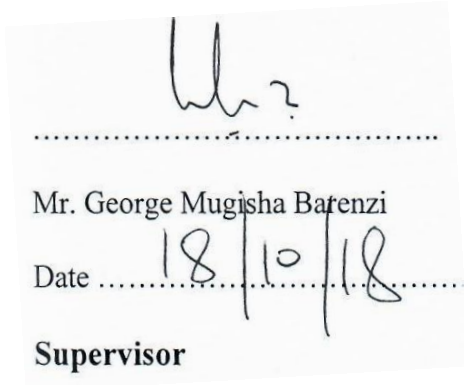 Mr. George Mugisha Barenzi
Date 18/10/18
Supervisor